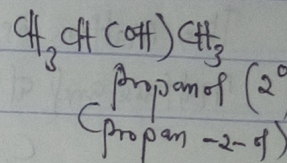 CH₃CH(OH)CH₃
propanol (2°
(propan-2-ol)